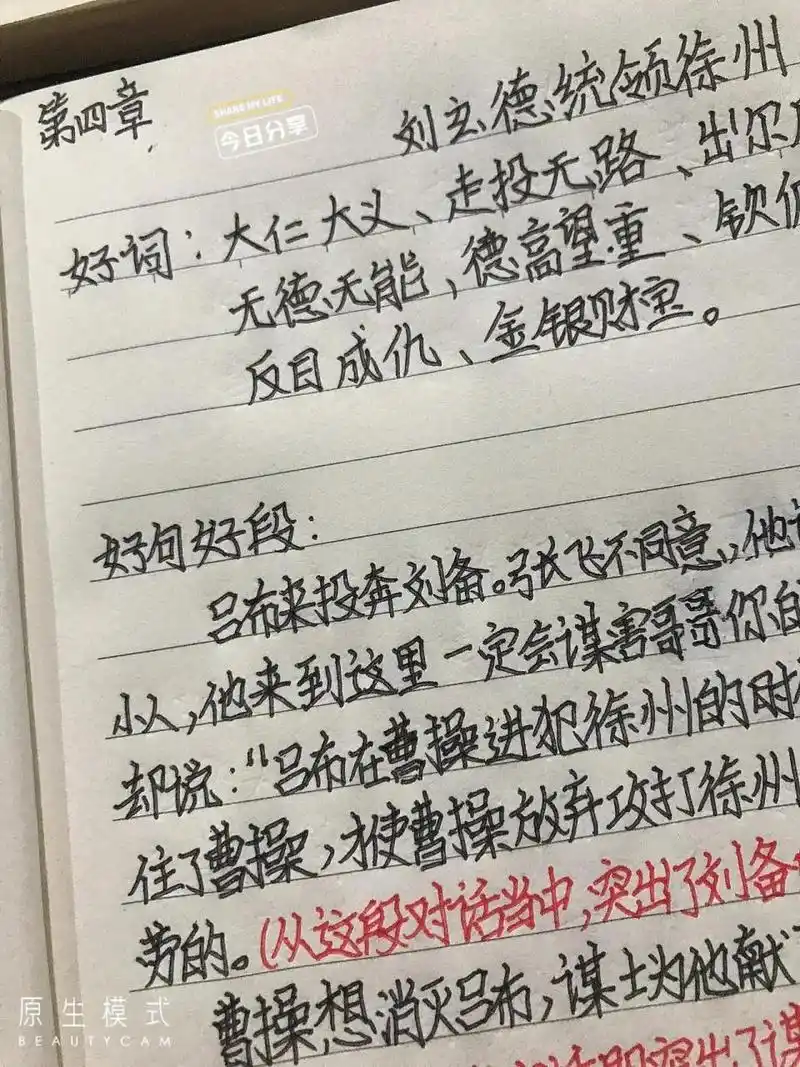 第四章
SHARE MY LIFE
今日分享
刘玄德统领徐州
好词：大仁大义、走投无路、出尔
无德无能、德高望重、钦
反目成仇、金银财宝。
好句好段：
吕布来投奔刘备。张飞不同意，他
小人，他来到这里一定会谋害哥哥你的
却说："吕布在曹操进犯徐州的时
住了曹操，才使曹操放弃攻打徐州
劳的。(从这段对话当中，突出了刘备
曹操想消灭吕布，谋士为他献
突出了谋
原生模式
BEAUTYCAM